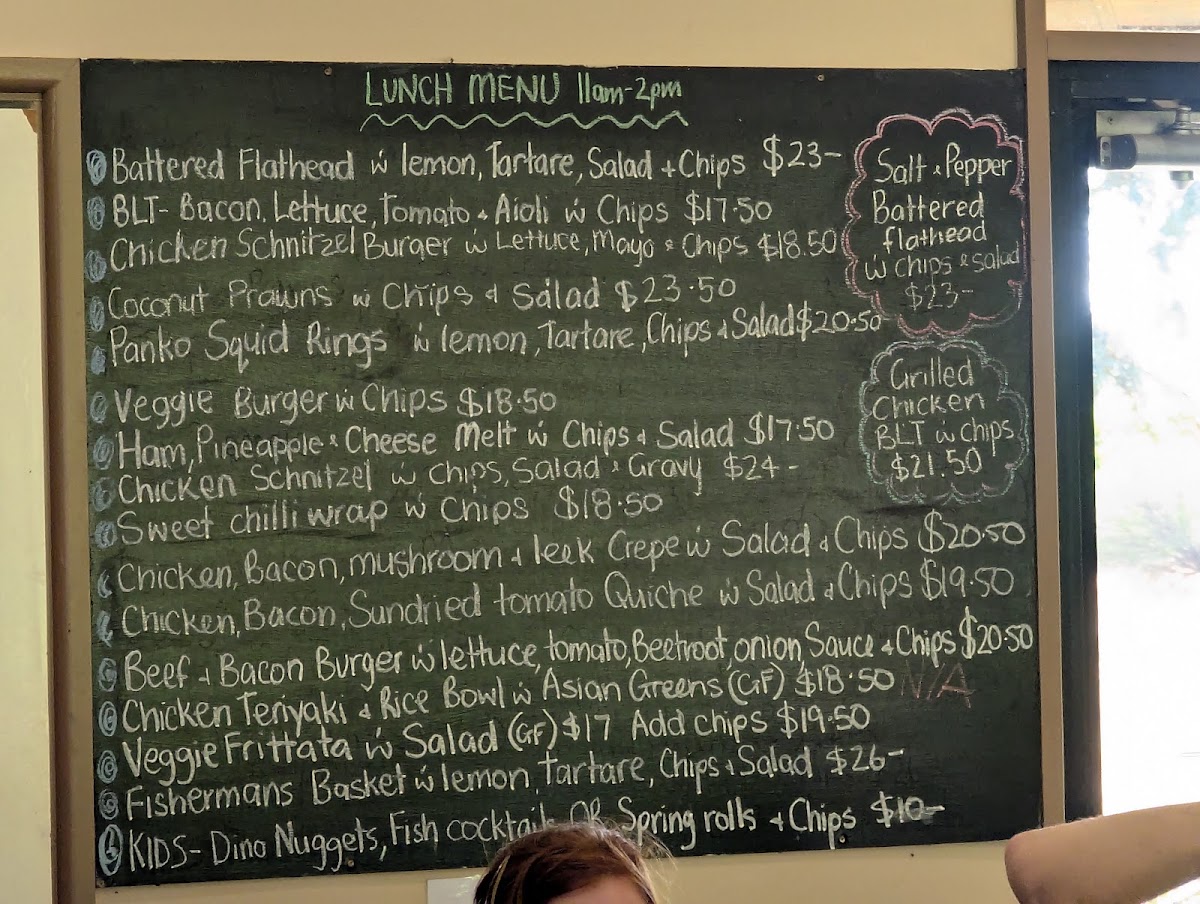 LUNCH MENU 11am-2pm
Battered Flathead w lemon, Tartare, Salad + Chips $23-
BLT- Bacon, Lettuce, Tomato & Aioli w Chips $17.50
Chicken Schnitzel Burger w Lettuce, Mayo & Chips $18.50
Coconut Prawns w Chips & Salad $23.50
Panko Squid Rings w lemon, Tartare, Chips & Salad $20.50
Veggie Burger w Chips $18.50
Ham, Pineapple & Cheese Melt w Chips & Salad $17.50
Chicken Schnitzel w Chips, Salad & Gravy $24-
Sweet chilli wrap w Chips $18.50
Chicken, Bacon, mushroom & leek Crepe w Salad & Chips $20.50
Chicken, Bacon, Sundried tomato Quiche w Salad & Chips $19.50
Beef & Bacon Burger w lettuce, tomato, Beetroot, onion, Sauce & Chips $20.50
Chicken Teriyaki & Rice Bowl w Asian Greens (GF) $18.50 N/A
Veggie Frittata w Salad (GF) $17 Add chips $19.50
Fishermans Basket w lemon, Tartare, Chips & Salad $26-
KIDS- Dino Nuggets, Fish cocktails OR Spring rolls & Chips $10-
Salt & Pepper
Battered
flathead
w chips & salad
$23-
Grilled
Chicken
BLT w chips
$21.50